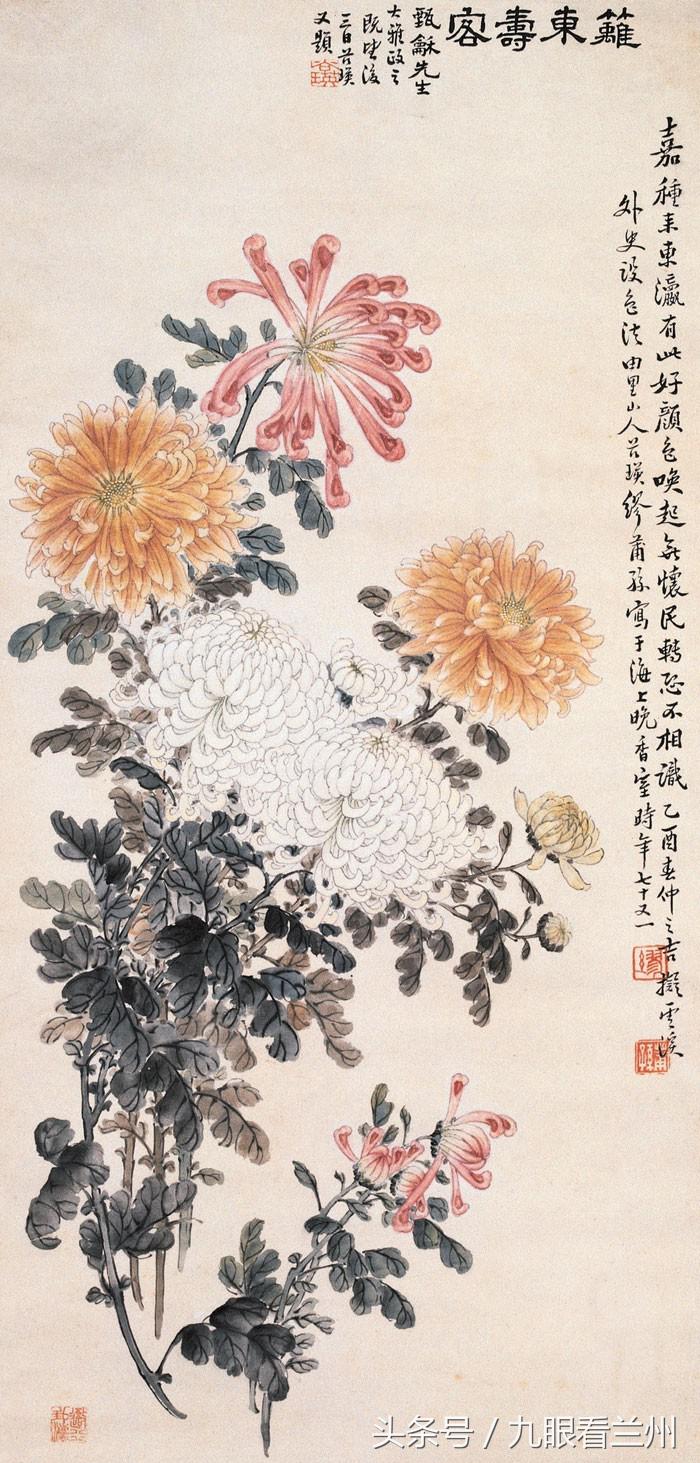 籬東壽客
嘉種来東瀛有此好顏色喚起無懷民轉恐不相識乙酉春仲之吉擬雲溪
外史設色法由里山人谷瑛繆莆孫寫于海上晚香室時年七十又一
甄龢先生
大雅政之
既望後
三日谷瑛
又題
谷瑛
繆
莆孫
头条号 / 九眼看兰州